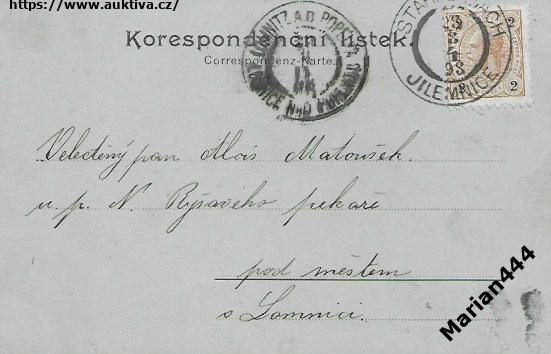 https://www.auktiva.cz/
Korespondenční lístek.
Correspondenz-Karte.
LOMNITZ A.D. POPELKA
LOMNICE NAD POPELKOU
STARKENBACH
JILEMNICE
93
2
2
Velectěný pan Alois Matoušek
u. p. N. Ryšavého pekaře
pod městem
v Lomnici.
Marian444